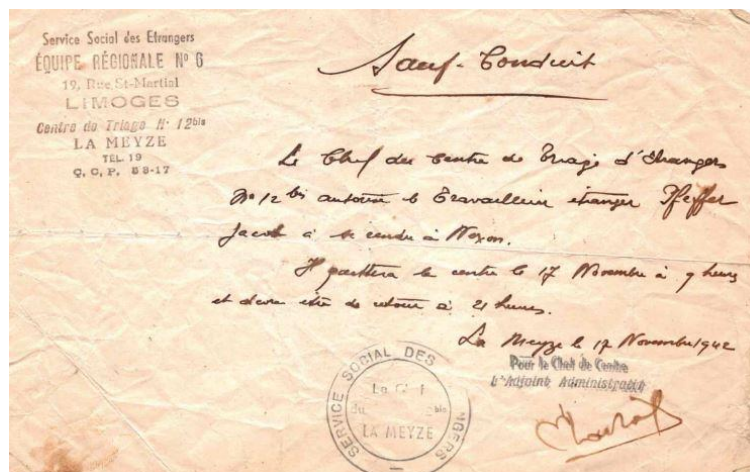 Service Social des Etrangers
ÉQUIPE RÉGIONALE Nº 6
19, Rue St-Martial
LIMOGES
Centre de Triage Nº 12bis
LA MEYZE
TEL. 19
C. C. P. 58-17
Sauf-Conduit
Le Chef du Centre de Triage d'Etrangers
Nº 12 bis autorise le Travailleur étranger Pfeiffer
Jacob à se rendre à Nexon.
Il quittera le centre le 17 Novembre à 9 heures
et devra être de retour à 21 heures.
La Meyze le 17 Novembre 1942
Pour le Chef de Centre
L'Adjoint Administratif
SERVICE SOCIAL DES
LA MEYZE